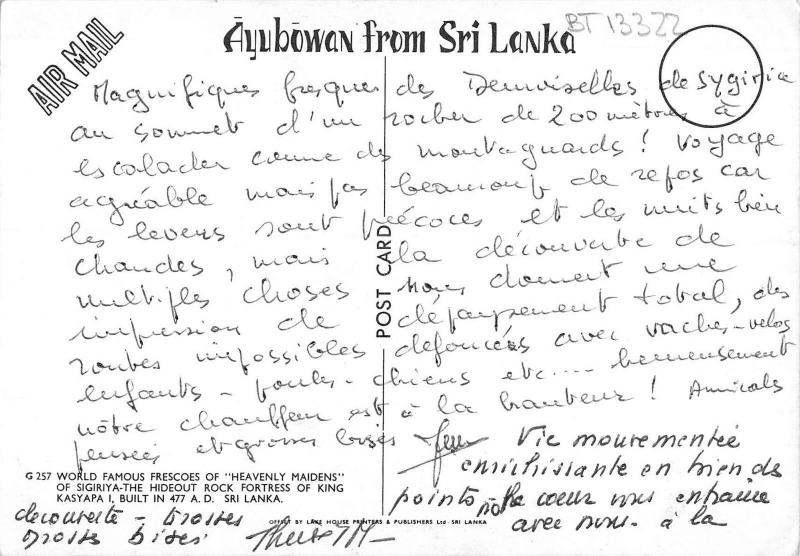 BT 13322
AIR MAIL
Āyubōwan from Sri Lanka
Magnifiques fresques des Demoiselles de Sygirica
au sommet d'un rocher de 200 mètres à
escalader comme des montagnards ! Voyage
agréable mais pas beaucoup de repos car
les levers sont précoces et les nuits bien
chaudes, mais la découverte de
multiples choses nous donnent une
impression de dépaysement total, des
routes impossibles défoncées avec vaches-velos
enfants - poules - chiens etc.... heureusement
nôtre chauffeur est à la hauteur ! Amicales
pensées et grosses bises
POST CARD
Vie mouvementée
enrichissante en bien des
points - le coeur nous entraine
avec nous à la
decouverte - Grosses
Grosses bises
G 257 WORLD FAMOUS FRESCOES OF "HEAVENLY MAIDENS"
OF SIGIRIYA-THE HIDEOUT ROCK FORTRESS OF KING
KASYAPA I, BUILT IN 477 A.D. SRI LANKA.
OFFSET BY LAKE HOUSE PRINTERS & PUBLISHERS Ltd. SRI LANKA